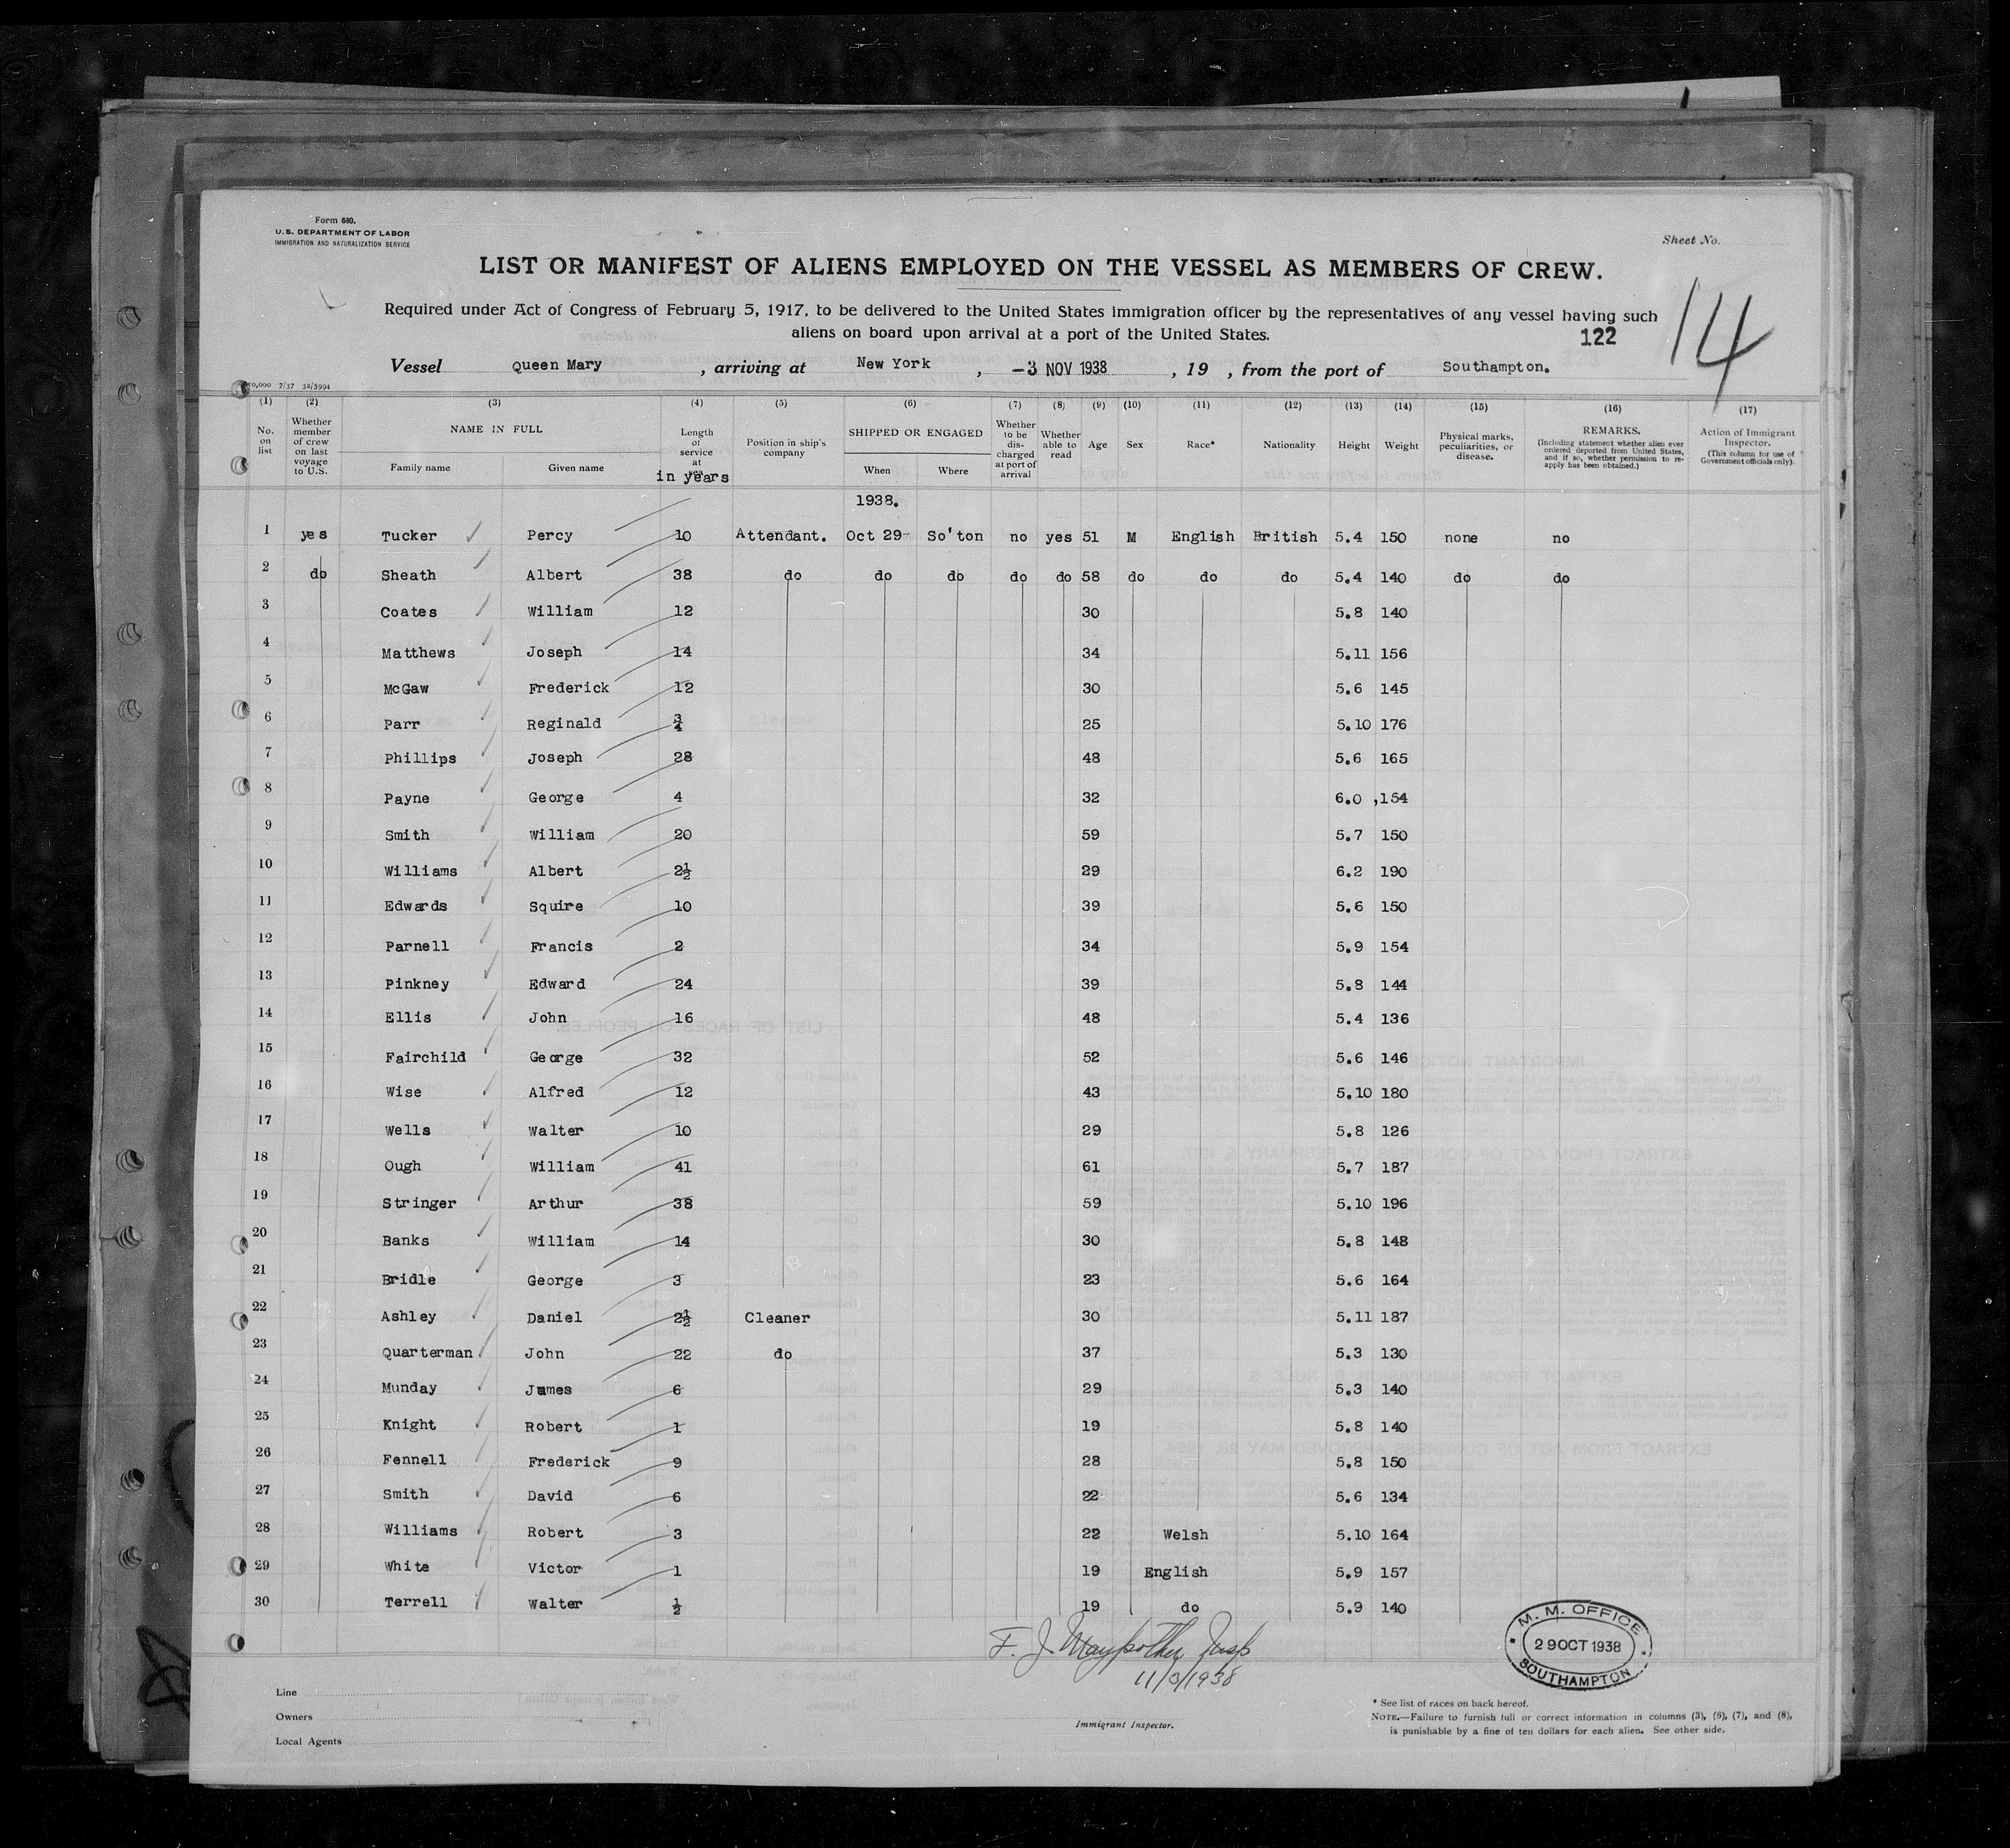 Form 680.
U.S. DEPARTMENT OF LABOR
IMMIGRATION AND NATURALIZATION SERVICE
Sheet No.
14
LIST OR MANIFEST OF ALIENS EMPLOYED ON THE VESSEL AS MEMBERS OF CREW.
Required under Act of Congress of February 5, 1917, to be delivered to the United States immigration officer by the representatives of any vessel having such
aliens on board upon arrival at a port of the United States.
122
Vessel Queen Mary, arriving at New York, -3 NOV 1938, 19 , from the port of Southampton.
(1) (2) (3) (4) (5) (6) (7) (8) (9) (10) (11) (12) (13) (14) (15) (16) (17)
No. on list
Whether member of crew on last voyage to U.S.
NAME IN FULL
Family name Given name
Length of service at
in years
Position in ship's company
SHIPPED OR ENGAGED
When Where
Whether to be discharged at port of arrival
Whether able to read
Age Sex Race* Nationality Height Weight
Physical marks, peculiarities, or disease.
REMARKS.
(Including statement whether alien ever ordered deported from United States, and if so, whether permission to re-apply has been obtained.)
Action of Immigrant Inspector.
(This column for use of Government officials only).
1938.
1 yes Tucker Percy 10 Attendant. Oct 29 So'ton no yes 51 M English British 5.4 150 none no
2 do Sheath Albert 38 do do do do do 58 do do do 5.4 140 do do
3 Coates William 12 30 5.8 140
4 Matthews Joseph 14 34 5.11 156
5 McGaw Frederick 12 30 5.6 145
6 Parr Reginald 3/4 25 5.10 176
7 Phillips Joseph 28 48 5.6 165
8 Payne George 4 32 6.0 ,154
9 Smith William 20 59 5.7 150
10 Williams Albert 2½ 29 6.2 190
11 Edwards Squire 10 39 5.6 150
12 Parnell Francis 2 34 5.9 154
13 Pinkney Edward 24 39 5.8 144
14 Ellis John 16 48 5.4 136
15 Fairchild George 32 52 5.6 146
16 Wise Alfred 12 43 5.10 180
17 Wells Walter 10 29 5.8 126
18 Ough William 41 61 5.7 187
19 Stringer Arthur 38 59 5.10 196
20 Banks William 14 30 5.8 148
21 Bridle George 3 23 5.6 164
22 Ashley Daniel 2½ Cleaner 30 5.11 187
23 Quarterman John 22 do 37 5.3 130
24 Munday James 6 29 5.3 140
25 Knight Robert 1 19 5.8 140
26 Fennell Frederick 9 28 5.8 150
27 Smith David 6 22 5.6 134
28 Williams Robert 3 22 Welsh 5.10 164
29 White Victor 1 19 English 5.9 157
30 Terrell Walter ½ 19 do 5.9 140
F. J. Insp
11/3/1938
M. M. OFFICE
29 OCT 1938
SOUTHAMPTON
Line
Owners
Local Agents
Immigrant Inspector.
* See list of races on back hereof.
NOTE.—Failure to furnish full or correct information in columns (3), (6), (7), and (8),
is punishable by a fine of ten dollars for each alien. See other side.